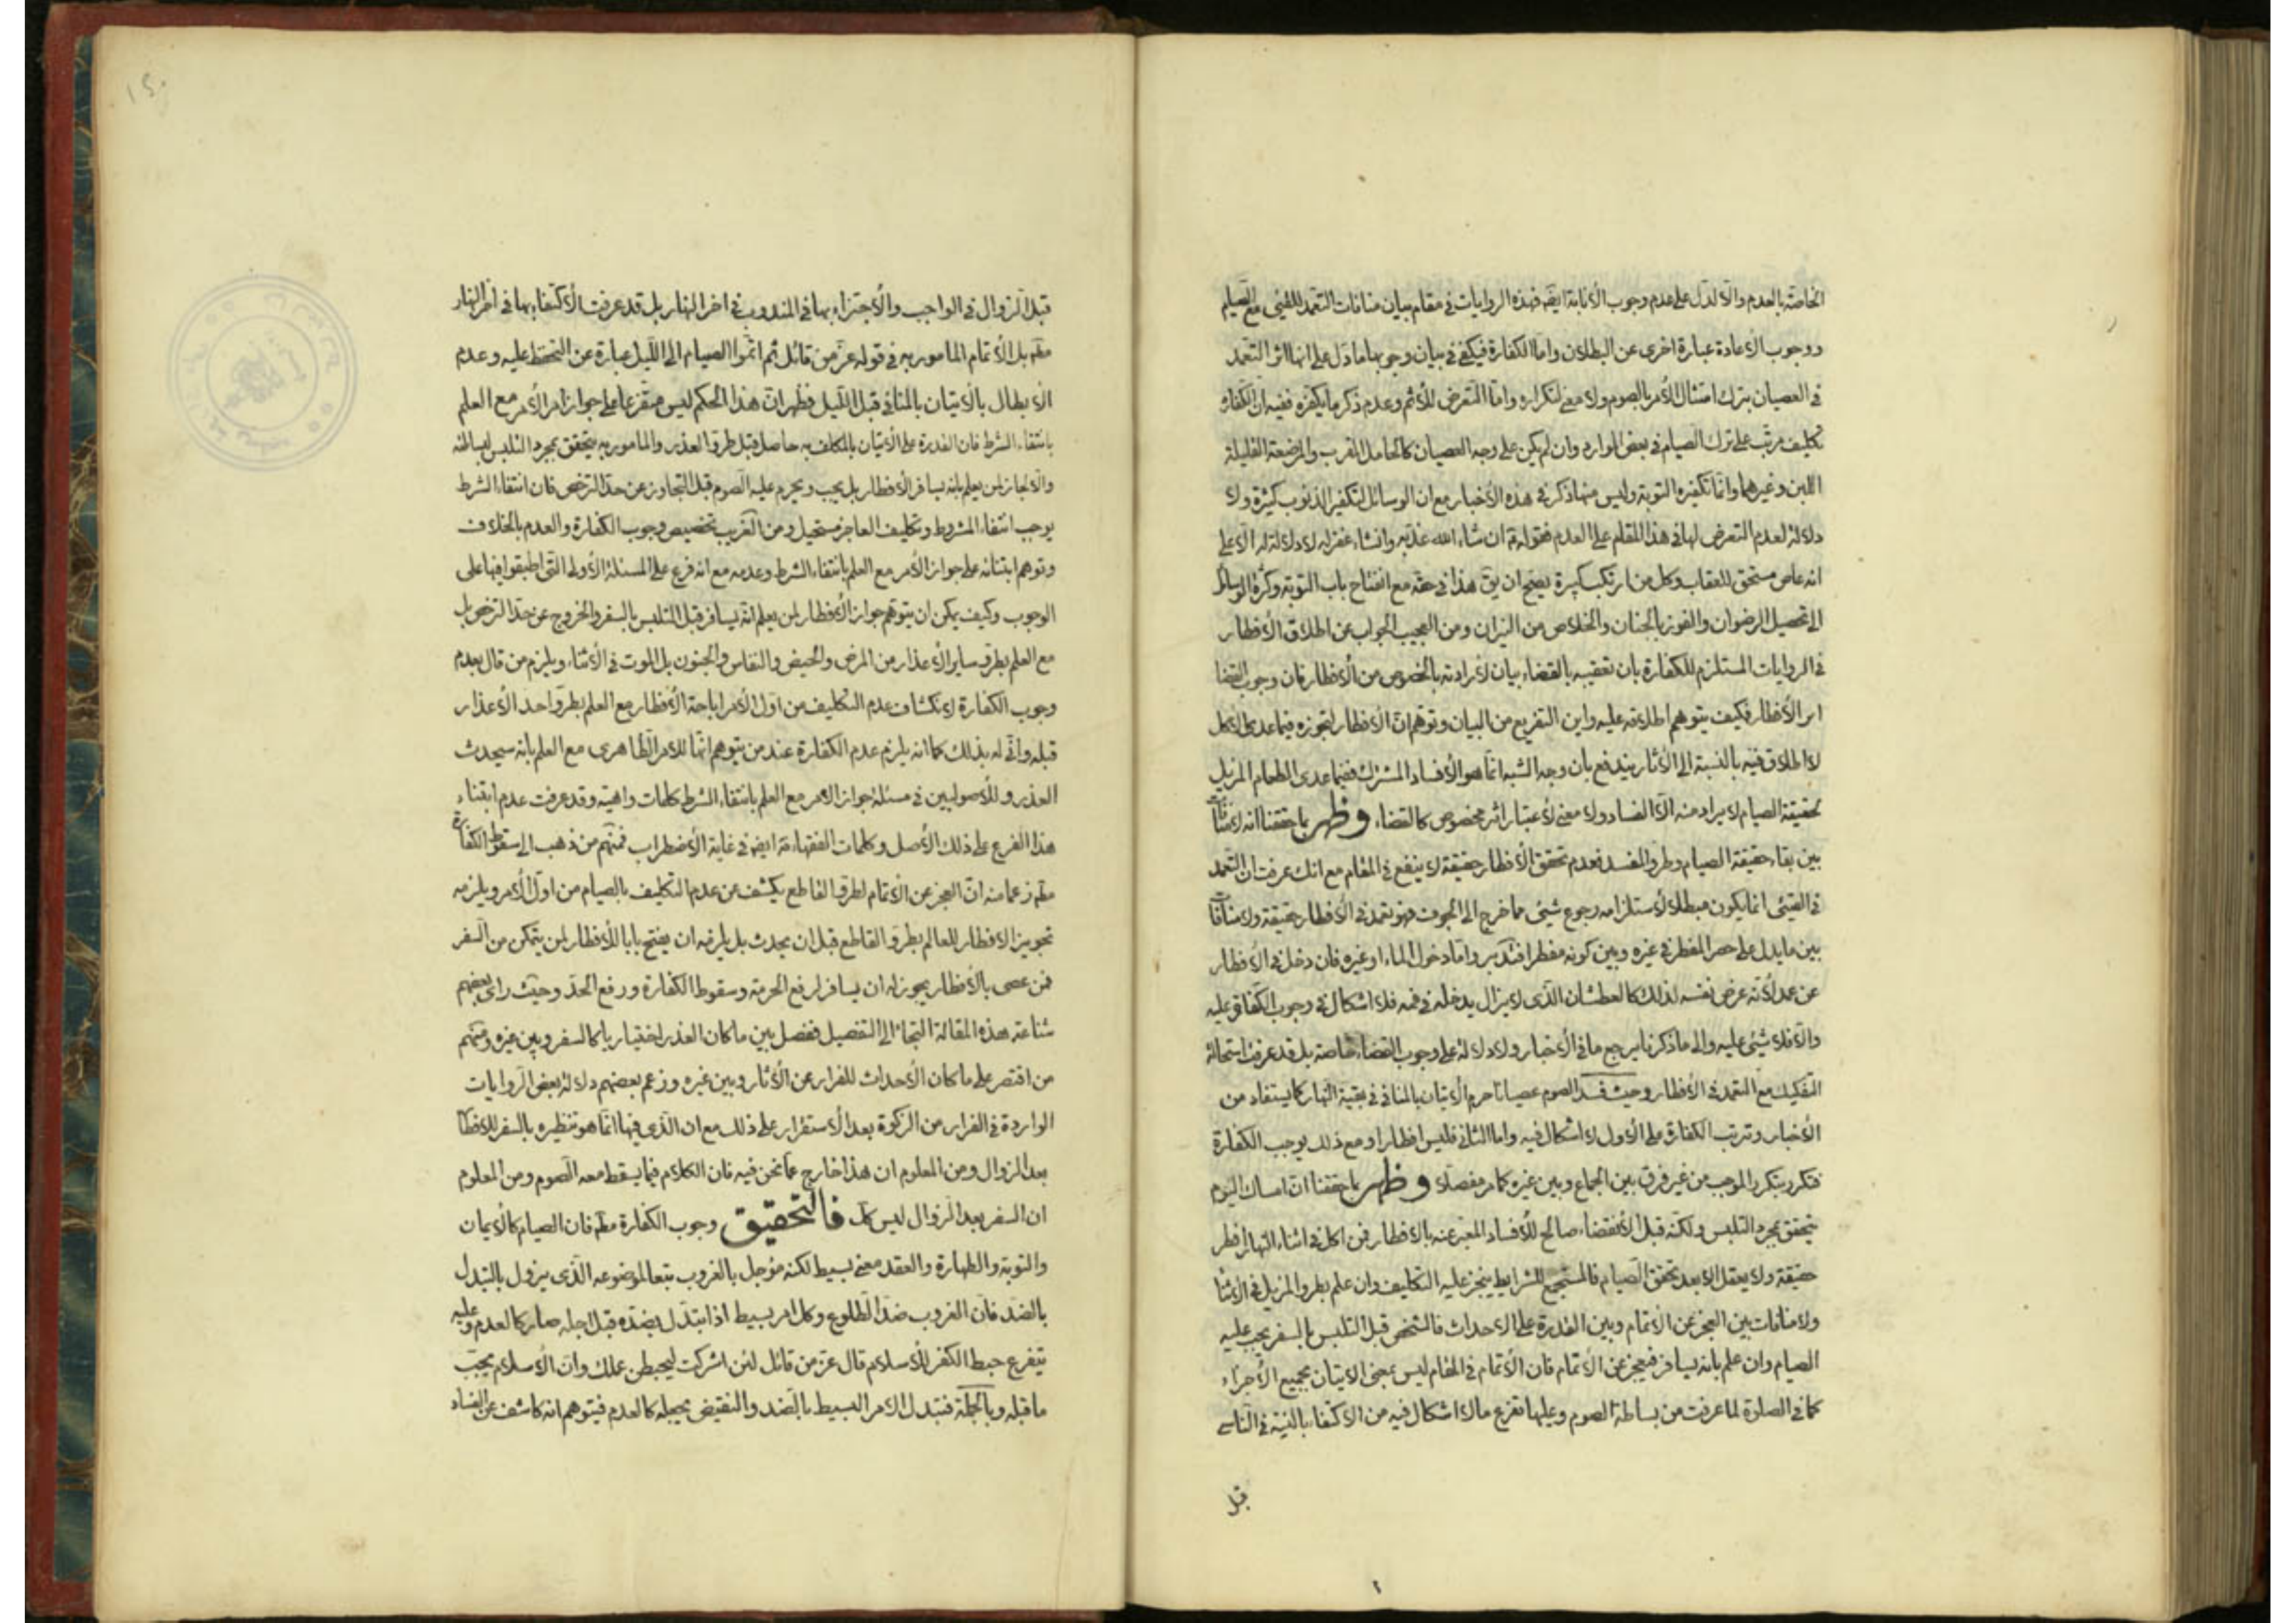 الخاصة بالعدم والا لدل على عدم وجوب الأنابة ايضه فهذه الروايات في مقام بيان منافات التعمد للقيئ مع الصيام
ووجوب الأعادة عبارة اخرى عن البطلان واما الكفارة فيكفي في بيان وجوبها ما دل على انها اثر التعمد
في العصيان بترك امتثال الأمر بالصوم ولا معنى لتكراره واما التعرض للأثم وعدم ذكر ما يكفره ففيه ان الكفارة
تكليف مرتب على ترك الصيام في بعض الموارد وان لم يكن على وجه العصيان كالحامل المقرب والمرضعة القليلة
اللبن وغيرهما وانما تكفيره التوبة وليس منها ذكر في هذه الأخبار مع ان الوسائل لتكفير الذنوب كثيرة ولا
دلالة لعدم التعرض لها في هذا المقام على العدم فقوله ان شاء الله عذبه وانشاء غفر له لا دلالة له الا على
انه عاص مستحق للعقاب وكل من ارتكب كبيرة يصح ان يق هذا في حقه مع انفتاح باب التوبة وكثرة الوسائل
الى تحصيل الرضوان والفوز بالجنان والخلاص من النيران ومن العجيب الجواب عن اطلاق الأفطار
في الروايات المستلزم للكفارة بان تعقيبه بالقضاء بيان لأرادته بالخصوص من الأفطار فان وجوب القضا
اثر الأفطار فكيف يتوهم اطلاقه عليه واين التفريع من البيان وتوهم ان الأفطار لتجوزه فيما عدى الأكل
لا اطلاق فيه بالنسبة الى الأثار يندفع بان وجه الشبه انما هو الأفساد المشترك ففيما عدى الطعام المزيل
لحقيقة الصيام لا يراد منه الا الفساد ولا معنى لأعتبار اثر مخصوص كالقضاء وظهر بما حققنا انه لا منافات
بين بقاء حقيقة الصيام وطرو المفسد فعدم تحقق الأفطار حقيقة لا ينفع في المقام مع انك عرفت ان التعمد
في القيئ انما يكون مبطلا لأستلزامه رجوع شيئ مما خرج الى الجوف فهو تعمد في الأفطار حقيقة ولا منافات
بين ما يدل على حصر المفطر في غيره وبين كونه مفطرا فتدبر واما دخول الماء او غيره فان دخل في الأفطار
عن عمد لأنه عرض نفسه لذلك كالعطشان الذى لا يزال يدخله في فمه فلا اشكال في وجوب الكفارة عليه
والا فلا شيئ عليه والى ما ذكرنا يرجع ما في الأخبار ولا دلالة على وجوب القضاء خاصة بل قد عرفت استحالة
التفكيك مع التعمد في الأفطار وحيث فسد الصوم عصيانا حرم الأتيان بالمنافي في بقية النهار كما يستفاد من
الأخبار وترتب الكفارة على الأول لا اشكال فيه واما الثاني فليس افطارا ومع ذلك يوجب الكفارة
فتكرر بتكرر الموجب من غير فرق بين الجماع وبين غيره كما مر مفصلا وظهر بما حققنا ان امساك اليوم
يتحقق بمجرد التلبس ولكنه قبل الأنقضاء صالح للأفساد المعبر عنه بالافطار فمن اكل في اثناء النهار افطر
حقيقة ولا يعقل الا بعد تحقق الصيام فالمستجمع للشرايط يتنجز عليه التكليف وان علم بطرو المزيل في الأثنا
ولا منافات بين العجز عن الأتمام وبين القدرة على الاحداث فالشخص قبل التلبس بالسفر يجب عليه
الصيام وان علم بانه يسافر فيعجز عن الأتمام فان الأتمام في المقام ليس بمعنى الاتيان بجميع الأجزاء
كما في الصلوة لما عرفت من بساطة الصوم وعليها تفرع مالا اشكال فيه من الاكتفاء بالنية في الناسي
قبل
١٥٠
قبل الزوال في الواجب والأجتزاء بها في المندوب في اخر النهار بل قد عرفت الأكتفاء بها في اخر النهار
مطم بل الأتمام المامور به في قوله عز من قائل ثم اتموا الصيام الى الليل عبارة عن التحفظ عليه وعدم
الأبطال بالأتيان بالمنافي قبل الليل فظهر ان هذا الحكم ليس متفرعا على جواز امر الأمر مع العلم
بانتفاء الشرط فان القدرة على الأتيان بالمكلف به حاصل قبل طرو العذر والمامور به يتحقق بمجرد التلبس لبساطته
والا لجاز لمن يعلم بانه يسافر الأفطار بل يجب ويحرم عليه الصوم قبل التجاوز عن حد الترخص فان انتفاء الشرط
يوجب انتفاء المشروط وتكليف العاجز مستحيل ومن الغريب تخصيص وجوب الكفارة والعدم بالخلاف
وتوهم ابتنائه على جواز الأمر مع العلم بانتفاء الشرط وعدمه مع انه فرع على المسئلة الأولى التى اطبقوا فيها على
الوجوب وكيف يمكن ان يتوهم جواز الأفطار لمن يعلم انه يسافر قبل التلبس بالسفر والخروج عن حد الترخص بل
مع العلم بطرو ساير الأعذار من المرض والحيض والنفاس والجنون بل الموت في الأثناء ويلزم من قال بعدم
وجوب الكفارة لانكشاف عدم التكليف من اول الأمر اباحة الأفطار مع العلم بطرو احد الأعذار
قبله وانى له بذلك كما انه يلزم عدم الكفارة عند من يتوهم انها للامر الظاهرى مع العلم بانه سيحدث
العذر وللأصوليين في مسئلة جواز الأمر مع العلم بانتفاء الشرط كلمات واهية وقد عرفت عدم ابتناء
هذا الفرع على ذلك الأصل وكلمات الفقهاء ايضه في غاية الأضطراب فمنهم من ذهب الى سقوط الكفارة
مطم زعما منه ان العجز عن الأتمام لطرو القاطع يكشف عن عدم التكليف بالصيام من اول الأمر ويلزمه
تجويز الافطار للعالم بطرو القاطع قبل ان يحدث بل يلزمه ان يفتح بابا للأفطار لمن يتمكن من السفر
فمن عصى بالأفطار يجوز له ان يسافر لرفع الحرمة وسقوط الكفارة ورفع الحد وحيث راى بعضهم
شناعة هذه المقالة التجاء الى التفصيل ففصل بين ما كان العذر اختياريا كالسفر وبين غيره ومنهم
من اقتصر على ما كان الأحداث للفرار عن الأثار وبين غيره وزعم بعضهم دلالة بعض الروايات
الواردة في الفرار من الزكوة بعد الأستقرار على ذلك مع ان الذى فيها انما هو تنظيره بالسفر للافطا
بعد الزوال ومن المعلوم ان هذا خارج عما نحن فيه فان الكلام فيما يسقط معه الصوم ومن المعلوم
ان السفر بعد الزوال ليس كك فالتحقيق وجوب الكفارة مطم فان الصيام كالأيمان
والتوبة والطهارة والعقد معنى بسيط لكنه مؤجل بالغروب تبعا لموضوعه الذى يزول بالتبدل
بالضد فان الغروب ضد الطلوع وكل امر بسيط اذا تبدل بضده قبل اجله صار كالعدم وعليه
يتفرع حبط الكفر للأسلام قال عز من قائل لئن اشركت ليحبطن عملك وان الأسلام يجب
ما قبله وبالجملة فتبدل الامر البسيط بالضد والنقيض يجعله كالعدم فيتوهم انه كاشف عن الفساد